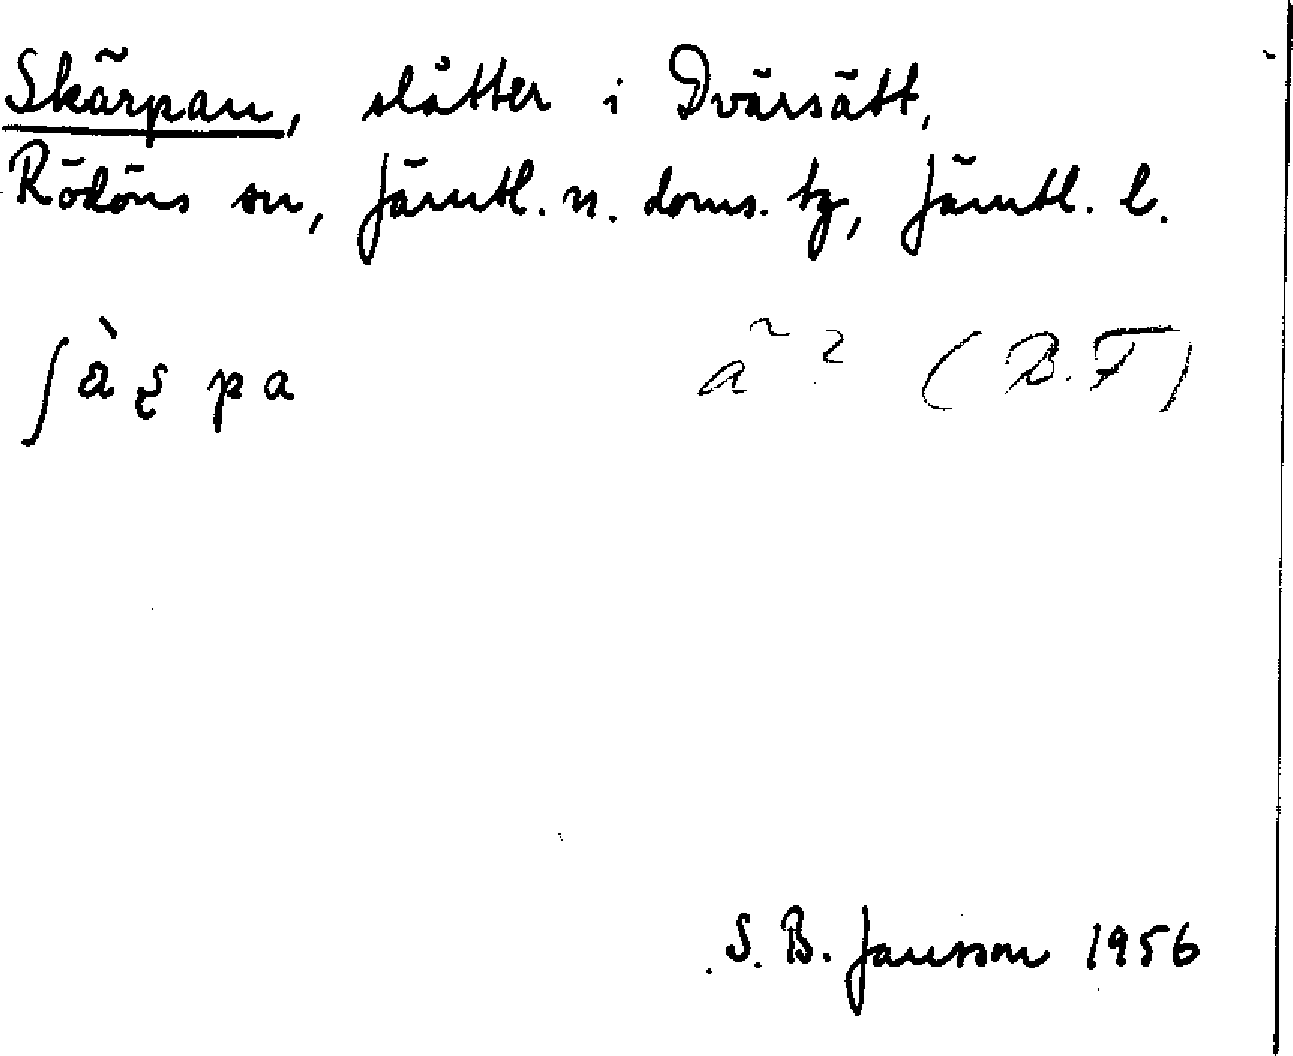 Skärpan, slåtter i Dvärsätt,
Rödöns sn, Jämtl. n. doms. tg, Jämtl. l.
ʃàʂpa ã ? (B.F)
S. B. Jansson 1956